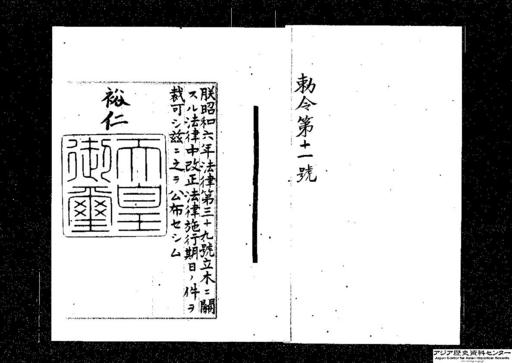 勅令第十一號
朕昭和六年法律第三十九號立木ニ關
スル法律中改正法律施行期日ノ件ヲ
裁可シ玆ニ之ヲ公布セシム
裕仁
天皇
御璽
アジア歴史資料センター
Japan Center for Asian Historical Records